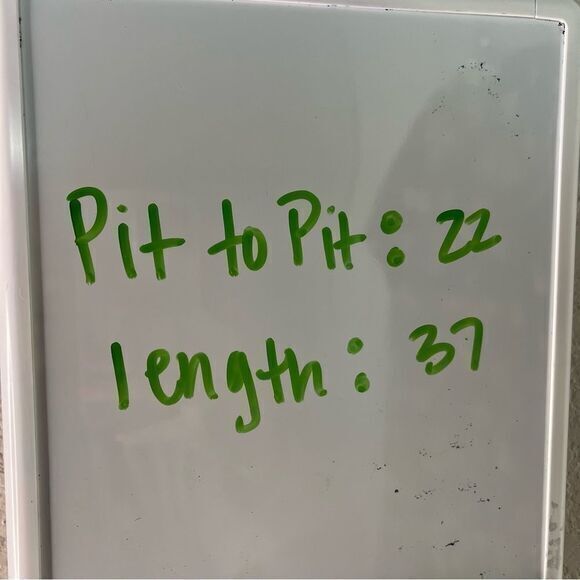 Pit to Pit: 22
length: 37